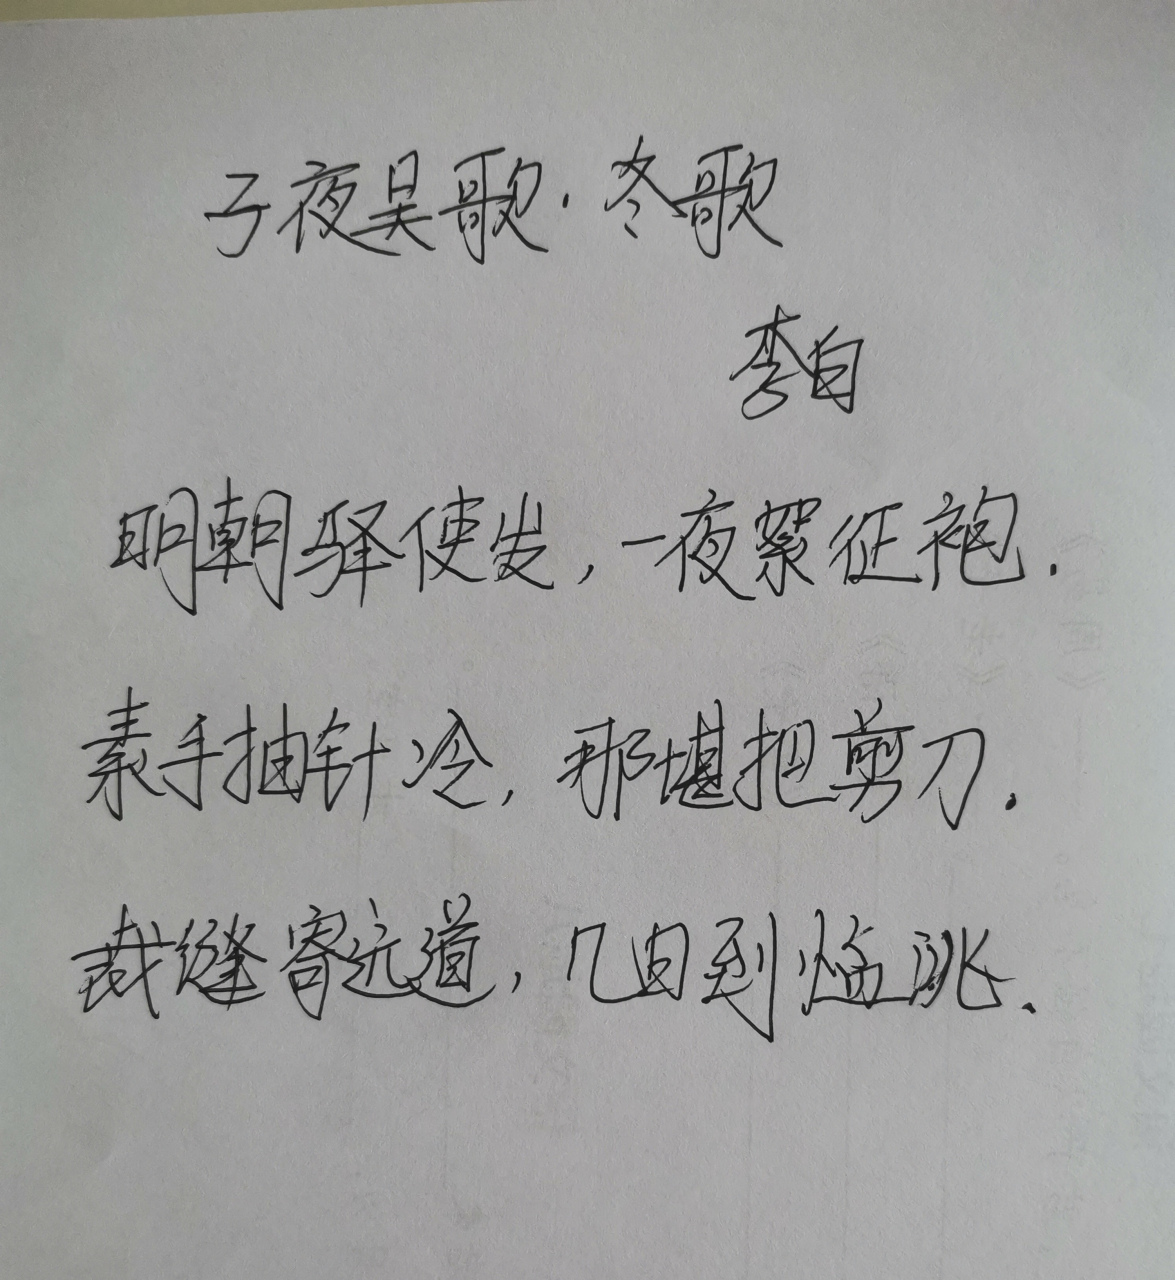 子夜吴歌·冬歌
李白
明朝驿使发，一夜絮征袍.
素手抽针冷，那堪把剪刀.
裁缝寄远道，几日到临洮.